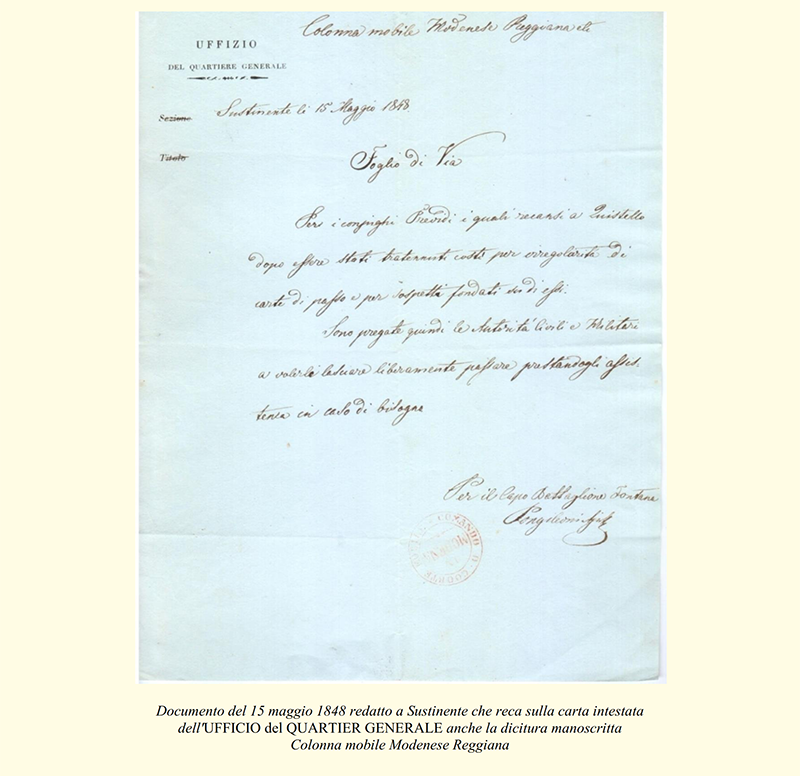 Colonna mobile Modenese Reggiana etc
UFFIZIO
DEL QUARTIERE GENERALE
Sezione
Sustinente li 15 Maggio 1848.
Titolo
Foglio di Via
Per i conjughi Previdi i quali recansi a Quistello
dopo essere stati trattenuti costì per irregolarità di
carte di passo e per sospetti fondati su di essi.
Sono pregate quindi le Autorità Civili e Militari
a volerle lasciare liberamente passare prestandogli assis-
tenza in caso di bisogno
Per il Capo Battaglione Fontana
COMANDO
Documento del 15 maggio 1848 redatto a Sustinente che reca sulla carta intestata
dell'UFFICIO del QUARTIER GENERALE anche la dicitura manoscritta
Colonna mobile Modenese Reggiana